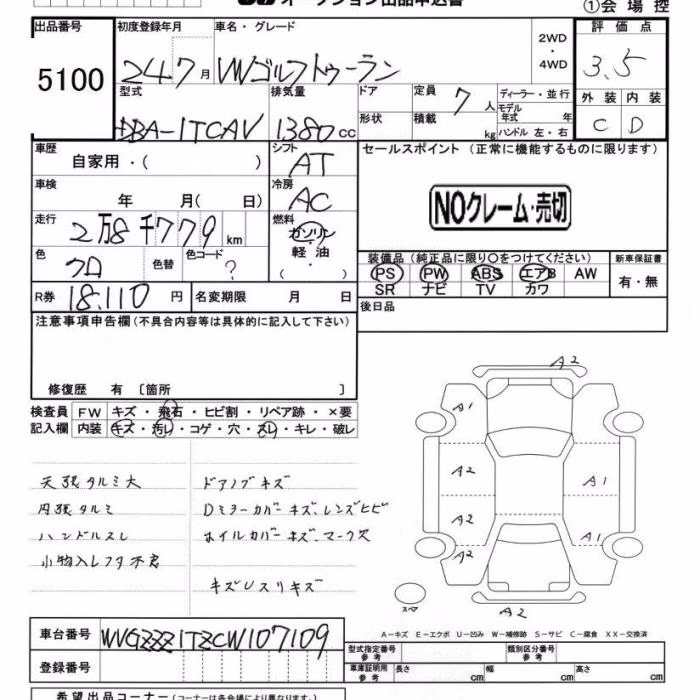 オークション出品申込書
①会場控
出品番号 初度登録年月 車名・グレード 評価点
5100 24 7 月 VWゴルフトゥーラン 2WD ・ 4WD 3.5
型式 排気量 ドア 定員 7 人 ディーラー・並行 外装 内装
DBA-1TCAV 1380 cc 形状 積載 kg モデル年式 年 ハンドル 左・右 C D
車歴 自家用・( ) シフト AT セールスポイント (正常に機能するものに限ります)
車検 年 月( 日) 冷房 AC NOクレーム・売切
走行 2万8千779 km 燃料 ガソリン 軽油 ( )
色 クロ 色替 色コード ? 装備品 (純正品に限り○をつけてください) 新車保証書
PS PW ABS エアB AW 有・無
SR ナビ TV カワ
R券 18.110 円 名変期限 月 日 後日品
注意事項申告欄 (不具合内容等は具体的に記入して下さい)
修復歴 有 〔箇所 〕
検査員 FW キズ・飛石・ヒビ割・リペア跡・×要
記入欄 内装 キズ・汚レ・コゲ・穴・スレ・キレ・破レ
天張タルミ大 ドアノブキズ
内張タルミ Dミラーカバーキズ、レンズヒビ
ハンドルスレ ホイルカバーキズ、マーク欠
小物入レフタ不良
キズUスリキズ
A2
A1
A2 A1
A2 A1
A2
スペア A2
A-キズ E-エクボ U-凹み W-補修跡 S-サビ C-腐食 XX-交換済
車台番号 WVGZZZ1TZCW107109
登録番号
型式指定番号 参考 類別区分番号 参考
車庫証明用 参考 長さ cm 幅 cm 高さ cm
希望出品コーナー (コーナーは各会場により異なります)